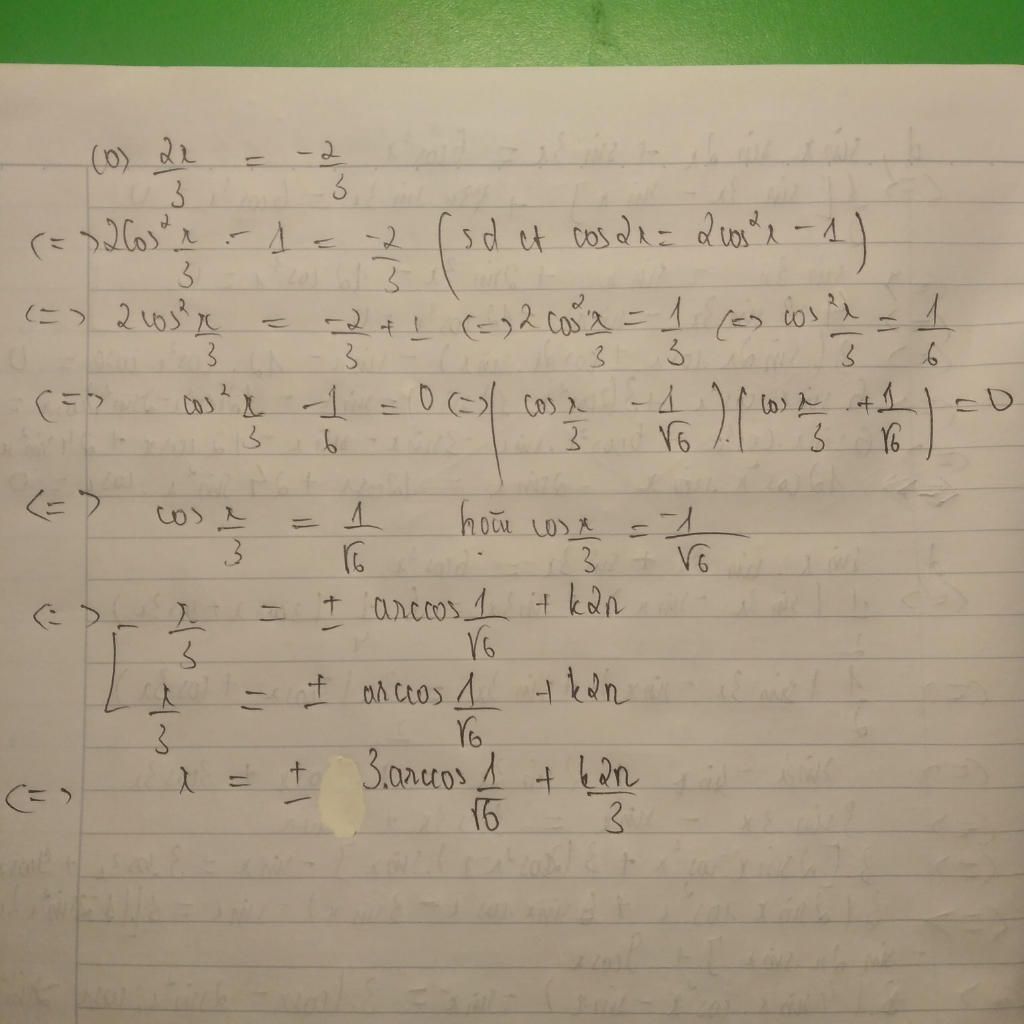 cos 2x/3 = -2/3
<=> 2cos² x/3 - 1 = -2/3 (sd ct cos2x = 2cos²x - 1)
<=> 2cos² x/3 = -2/3 + 1 <=> 2cos² x/3 = 1/3 <=> cos² x/3 = 1/6
<=> cos² x/3 - 1/6 = 0 <=> (cos x/3 - 1/√6).(cos x/3 + 1/√6) = 0
<=> cos x/3 = 1/√6 hoặc cos x/3 = -1/√6
<=> [ x/3 = ± arccos 1/√6 + k2π
x/3 = ± arccos 1/√6 + k2π
<=> x = ± 3.arccos 1/√6 + k2π/3